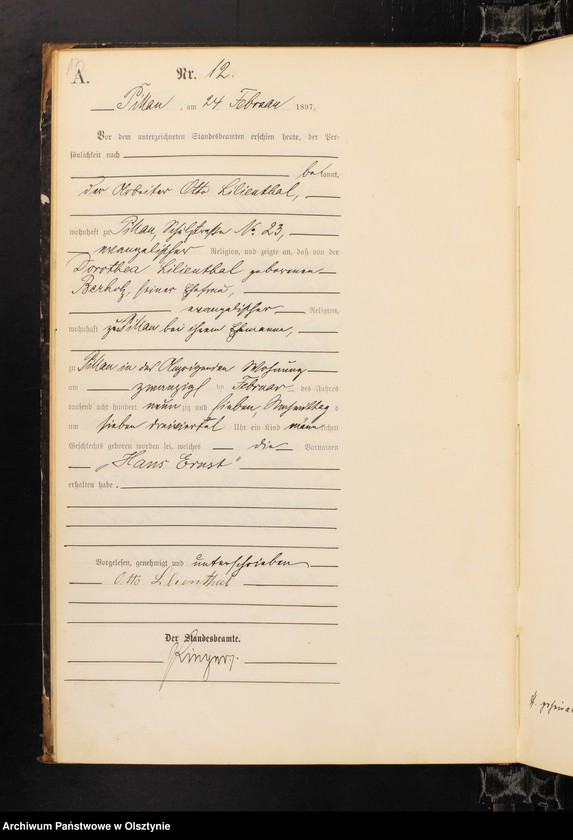 12
A.
Nr. 12.
Pillau, am 24. Februar 1897.
Vor dem unterzeichneten Standesbeamten erschien heute, der Per-
sönlichkeit nach
bekannt,
der Arbeiter Otto Lilienthal,
wohnhaft zu Pillau, Schulstraße No 23,
evangelischer Religion, und zeigte an, daß von der
Dorothea Lilienthal geborenen
Berholz, seiner Ehefrau,
evangelischer Religion,
wohnhaft zu Pillau bei ihrem Ehemanne,
zu Pillau in der Wohnung
am zwanzigsten Februar des Jahres
tausend acht hundert neunzig und sieben, Nachmittags
um sieben dreiviertel Uhr ein Kind männlichen
Geschlechts geboren worden sei, welches die Vornamen
„Hans Ernst"
erhalten habe.
Vorgelesen, genehmigt und unterschrieben
Otto Lilienthal
Der Standesbeamte.
Archiwum Państwowe w Olsztynie